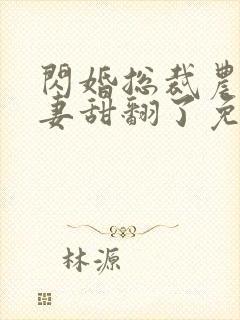 閃婚总裁農
妻甜翻了免
林源